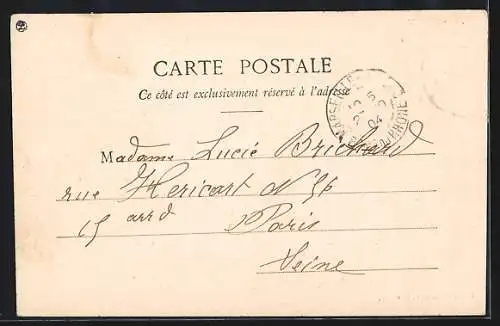 CARTE POSTALE
Ce côté est exclusivement réservé à l'adresse
MARSEILLE
Madame Lucie Brichard
rue Hericart N 56
15 arrd Paris
Seine